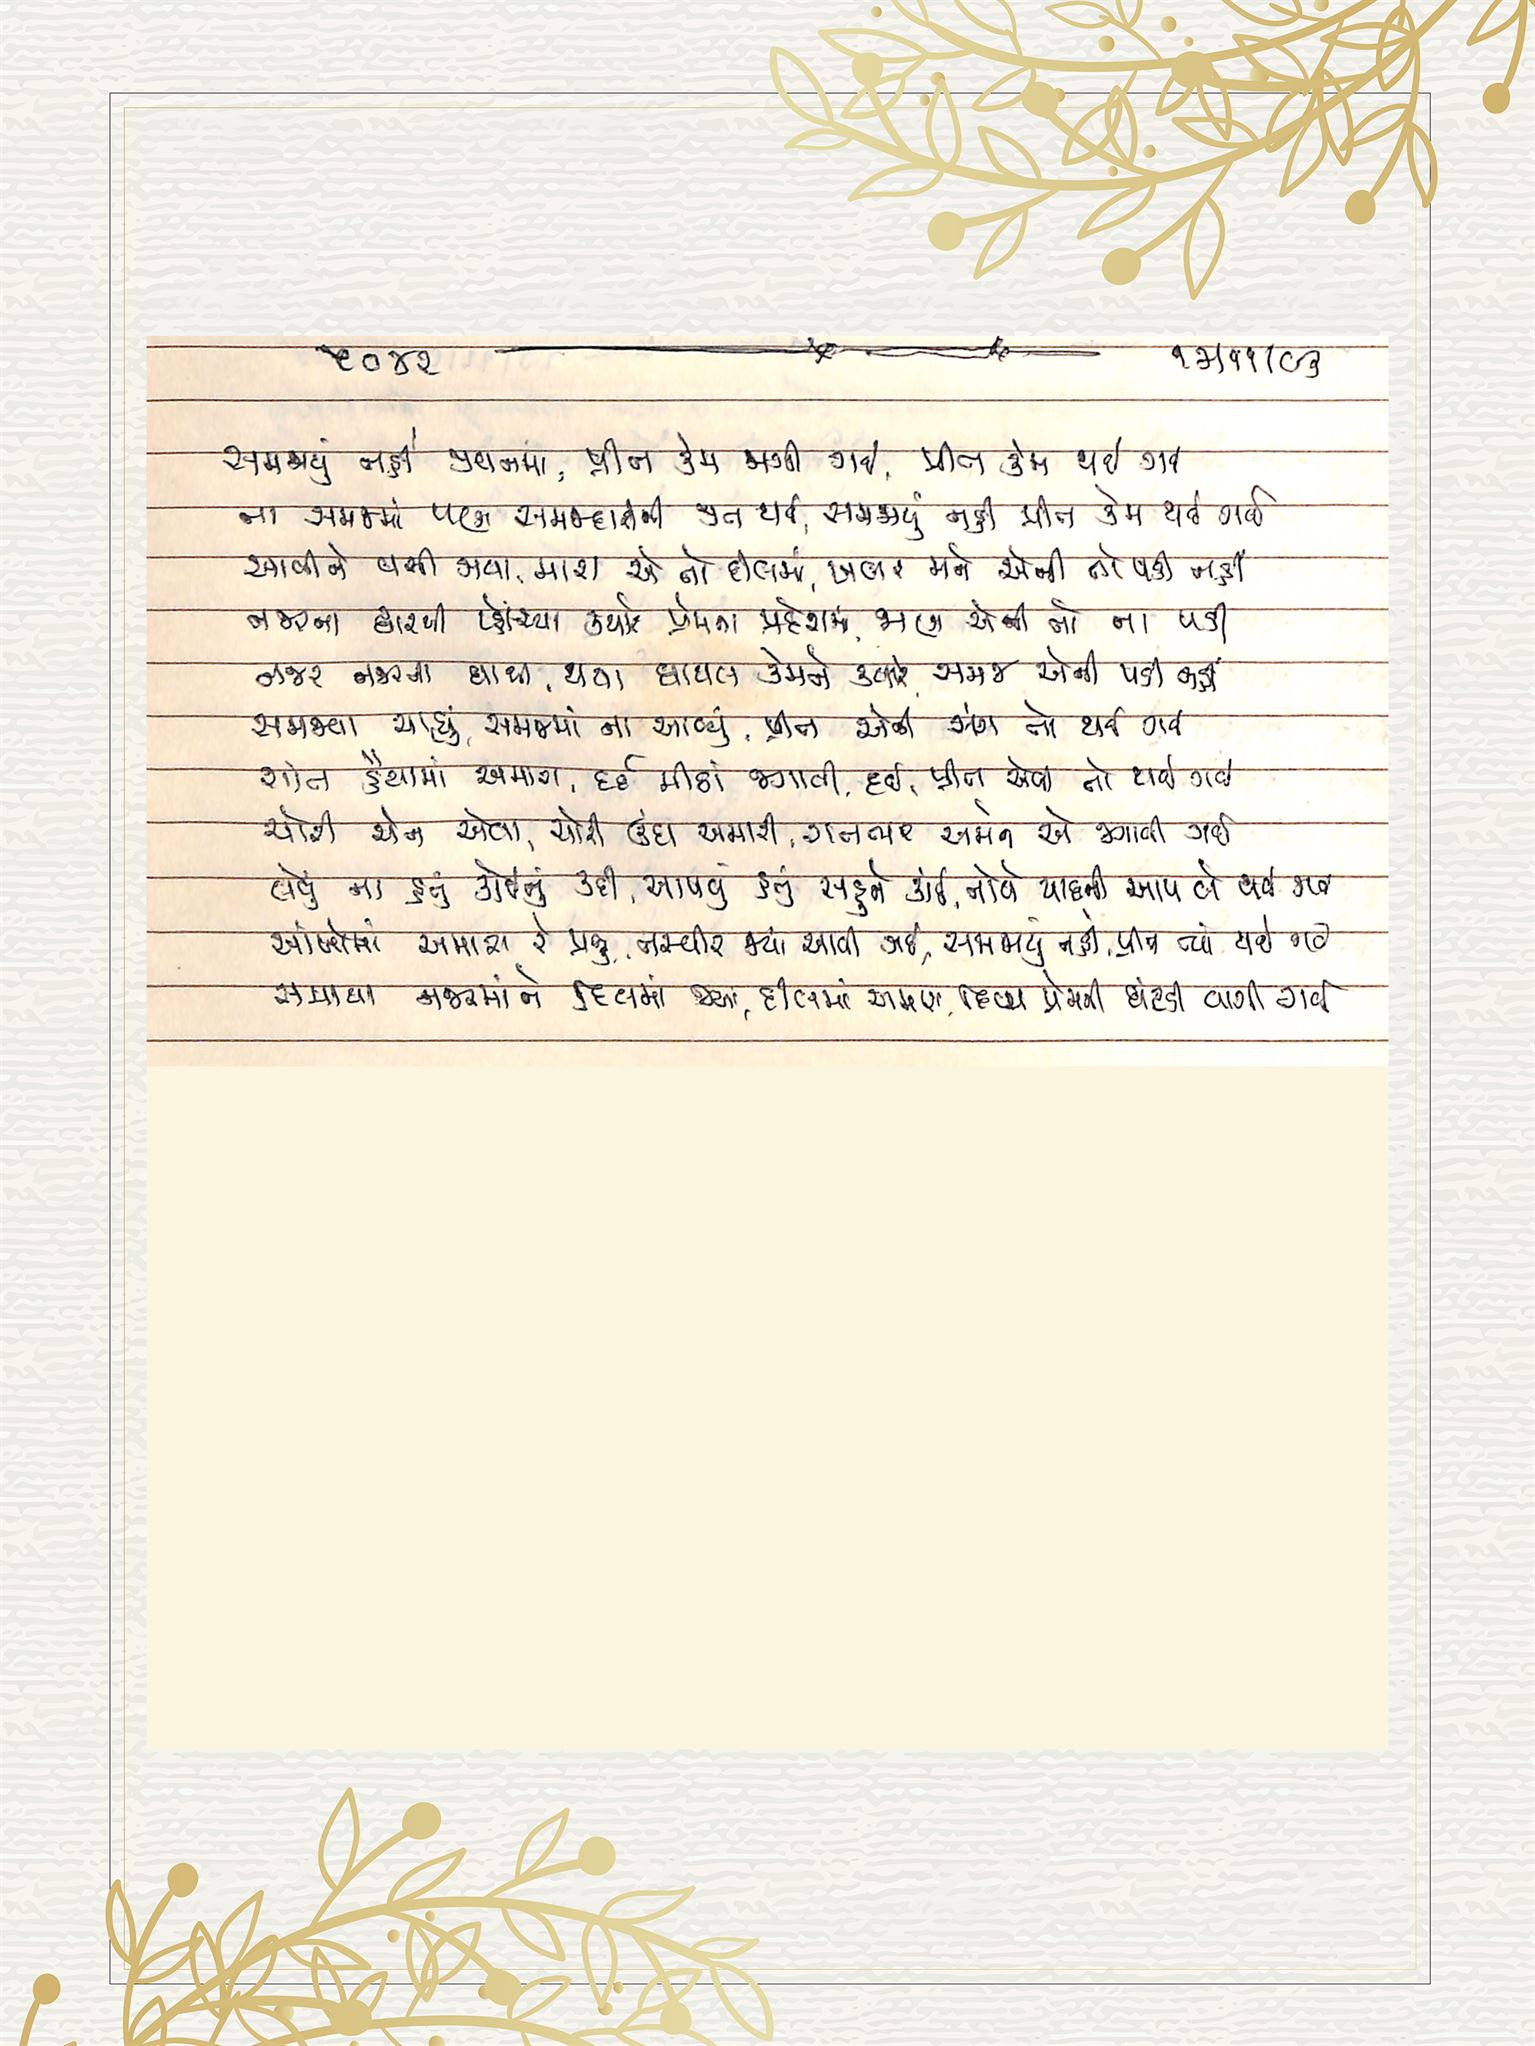 ૬૦૪૨ ૧૩/૧૧/૦૩
સમજાયું નહીં જીવનમાં, પ્રીત કેમ જાગી ગઈ, પ્રીત કેમ થઈ ગઈ
ના સમજમાં પણ સમજદારીની જીત થઈ, સમજાયું નહીં પ્રીત કેમ થઈ ગઈ
આવીને વસી ગયા, મારા એ તો દીલમાં, ખબર મને એની તો પડી નહીં
નજરના દ્વારથી પહોંચ્યા ક્યારે પ્રેમના પ્રદેશમાં, જાણ એની તો ના પડી
નજર નજરના ઘાથી, થયા ઘાયલ કેમને ક્યારે, સમજ એની પડી નહીં
સમજવા ચાહ્યું, સમજમાં ના આવ્યું, પ્રીત એની સંગ તો થઈ ગઈ
શાંત હૈયામાં અમારા, દર્દ મીઠાં જગાવી, દઈ, પ્રીત એવી તો થઈ ગઈ
ચોરી ચેન એવા, ચોરી ઉંઘ અમારી, રાતભર અમને એ જગાવી ગઈ
લેવું ના હતું કોઈનું કદી, આપવું હતું સહુને કાંઈ, તોયે યાદની આપ લે થઈ ગઈ
આંખોમાં અમારા રે પ્રભુ, તસ્વીર જ્યાં આવી ગઈ, સમજાયું નહીં, પ્રીત ત્યાં થઈ ગઈ
સમાયા નજરમાંને દિલમાં જ્યાં, દીલમાં અમારા, દિવ્ય પ્રેમની ઘંટડી વાગી ગઈ